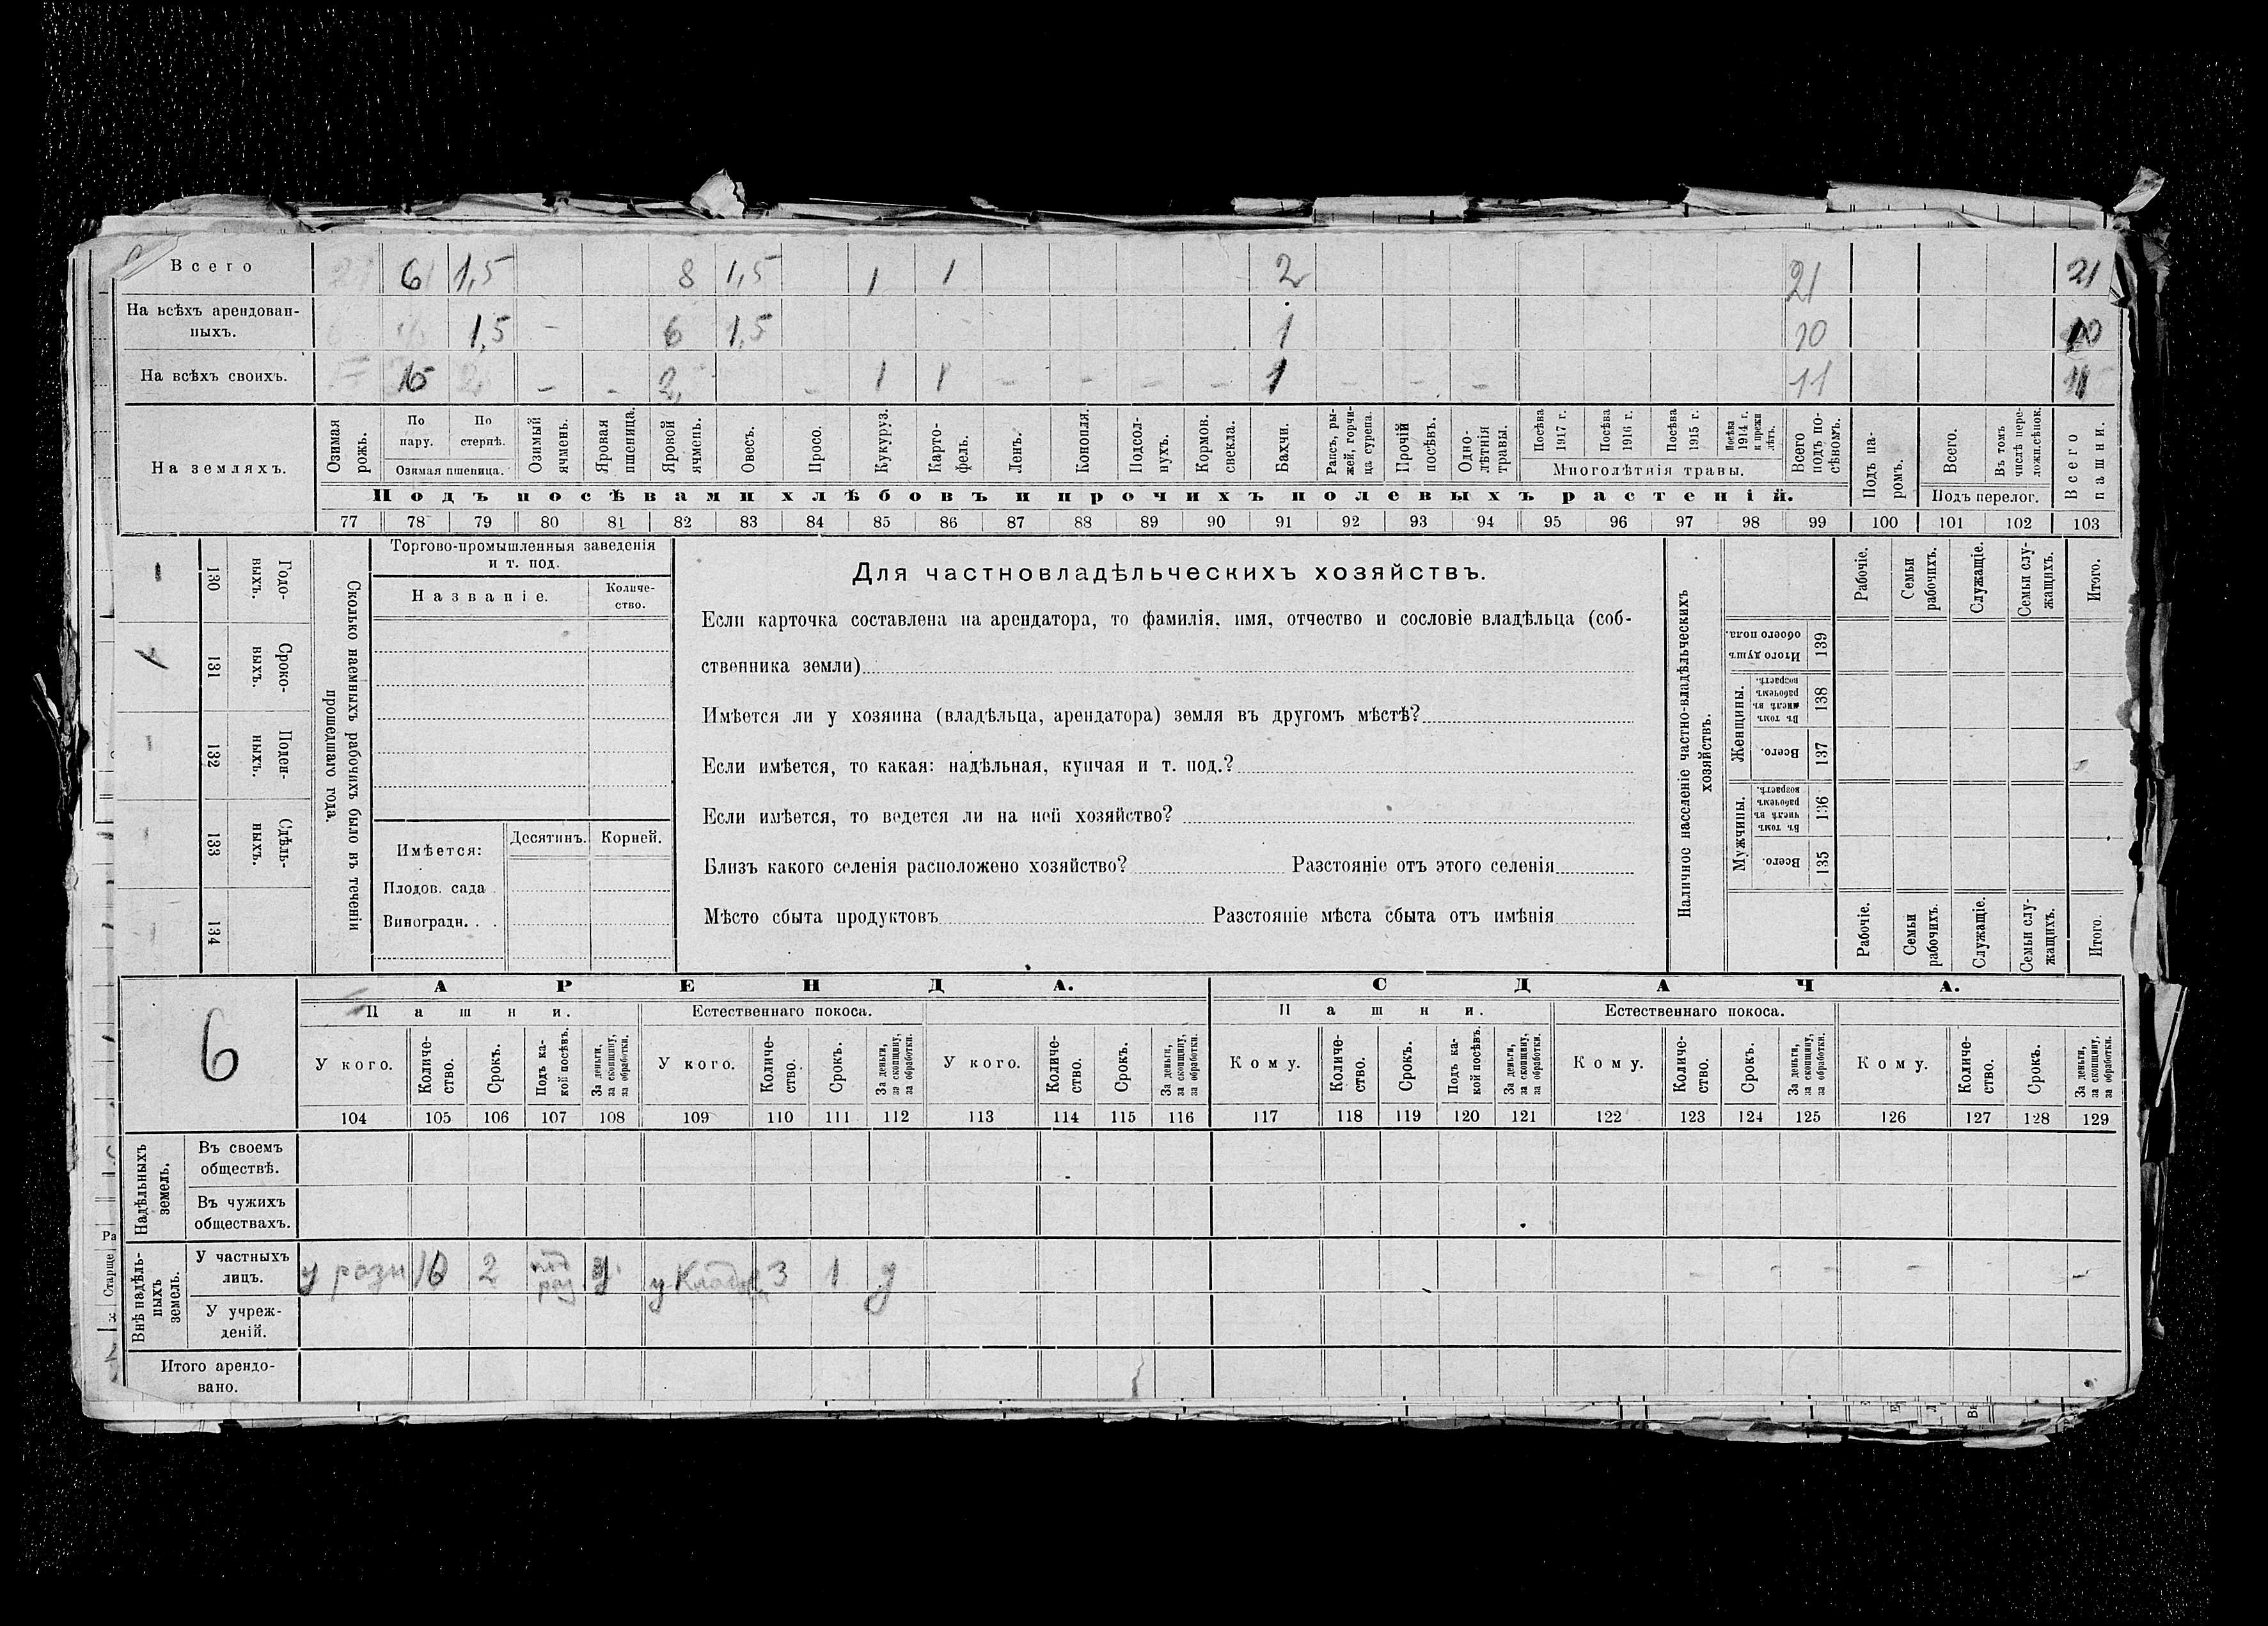 Всего 6 1,5 8 1,5 1 1 2 21 21
На всѣхъ арендован-
ныхъ. 1,5 - 6 1,5 1 10 10
На всѣхъ своихъ. - - 2 - 1 1 - - - - 1 - - - 11 11
На земляхъ.
Озимая рожь.
По пару.
По стернѣ.
Озимая пшеница.
Озимый ячмень.
Яровая пшеница.
Яровой ячмень.
Овесъ.
Просо.
Кукуруз.
Карто-
фель.
Ленъ.
Конопля.
Подсол-
нухъ.
Кормов.
свекла.
Бахчи.
Рапсъ, ры-
жей, горчи-
ца сурепа.
Прочій
посѣвъ.
Одно-
лѣтнія
травы.
Посѣва
1917 г.
Посѣва
1916 г.
Посѣва
1915 г.
Посѣва
1914 г.
и прежн
лѣтъ.
Многолѣтнія травы.
Всего
подъ по-
сѣвомъ.
Подъ посѣвами хлѣбовъ и прочихъ полевыхъ растеній.
Подъ па-
ромъ.
Всего.
Въ томъ
числѣ пере-
ложн.сѣнок.
Подъ перелог.
Всего
пашни.
77 78 79 80 81 82 83 84 85 86 87 88 89 90 91 92 93 94 95 96 97 98 99 100 101 102 103
Сколько наемныхъ рабочихъ было въ теченіи
прошедшаго года.
Годо-
выхъ.
130
-
Сроко-
ныхъ.
131
1
Поден-
ныхъ.
132
-
Сдѣль-
ныхъ.
133
-
134
Торгово-промышленныя заведенія
и т. под.
Названіе.
Количе-
ство.
Имѣется: Десятинъ. Корней.
Плодов. сада
Виноградн. . .
Для частновладѣльческихъ хозяйствъ.
Если карточка составлена на арендатора, то фамилія, имя, отчество и сословіе владѣльца (соб-
ственника земли)
Имѣется ли у хозяина (владѣльца, арендатора) земля въ другомъ мѣстѣ?
Если имѣется, то какая: надѣльная, купчая и т. под.?
Если имѣется, то ведется ли на ней хозяйство?
Близъ какого селенія расположено хозяйство? Разстояніе отъ этого селенія
Мѣсто сбыта продуктовъ Разстояніе мѣста сбыта отъ имѣнія
Наличное населеніе частно-владѣльческихъ
хозяйствъ.
Итого душъ
обоего пола.
139
Женщины.
Въ томъ
числѣ въ
рабочемъ
возрастѣ.
138
Всего.
137
Мужчины.
Въ томъ
числѣ въ
рабочемъ
возрастѣ.
136
Всего.
135
Рабочіе.
Семьи
рабочихъ.
Служащіе.
Семьи слу-
жащихъ.
Итого.
Рабочіе.
Семьи
рабочихъ.
Служащіе.
Семьи слу-
жащихъ.
Итого.
6
АРЕНДА.
Пашни.
Естественнаго покоса.
У кого.
Количе-
ство.
Срокъ.
Подъ ка-
кой посѣвъ.
За деньги,
за скопщину,
за обработки.
У кого.
Количе-
ство.
Срокъ.
За деньги,
за скопщину,
за обработки.
У кого.
Количе-
ство.
Срокъ.
За деньги,
за скопщину,
за обработки.
СДАЧА.
Пашни.
Естественнаго покоса.
Кому.
Количе-
ство.
Срокъ.
Подъ ка-
кой посѣвъ.
За деньги,
за скопщину,
за обработки.
Кому.
Количе-
ство.
Срокъ.
За деньги,
за скопщину,
за обработки.
Кому.
Количе-
ство.
Срокъ.
За деньги,
за скопщину,
за обработки.
104 105 106 107 108 109 110 111 112 113 114 115 116 117 118 119 120 121 122 123 124 125 126 127 128 129
Надѣльныхъ
земель.
Въ своемъ
обществѣ.
Въ чужихъ
обществахъ.
Внѣ надѣль-
ныхъ
земель.
У частныхъ
лицъ.
у разн 10 2 под раз у 3 1 д
У учреж-
деній.
Итого арендо-
вано.
Ра
Старше